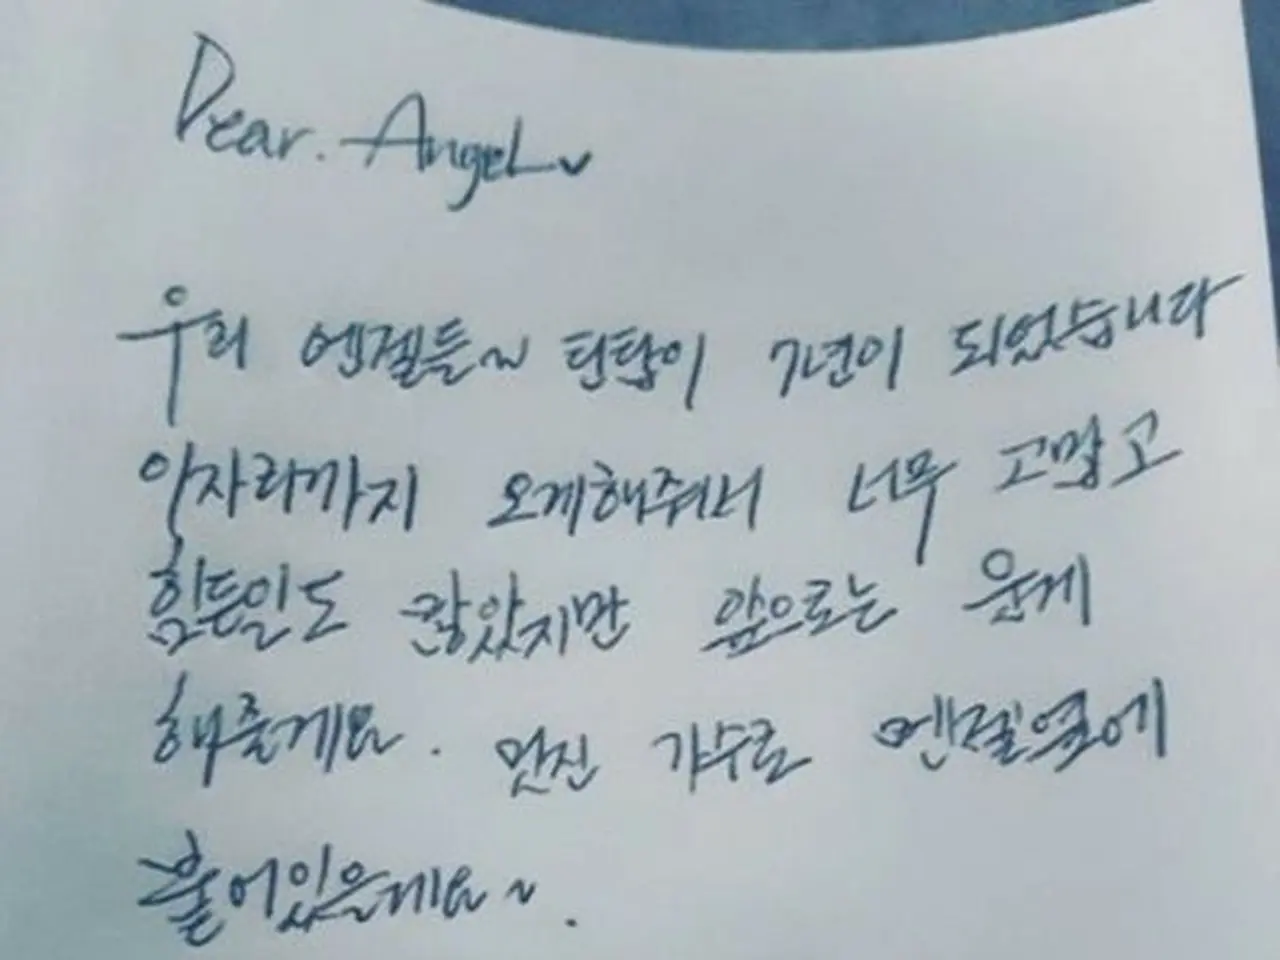 Dear. Angel
우리 엔젤들~ 틴탑이 7년이 되었습니다
이자리까지 오게해줘서 너무 고맙고
힘든일도 많았지만 앞으로는 웃게
해줄게요. 멋진 가수로 엔젤옆에
붙어있을게요~.